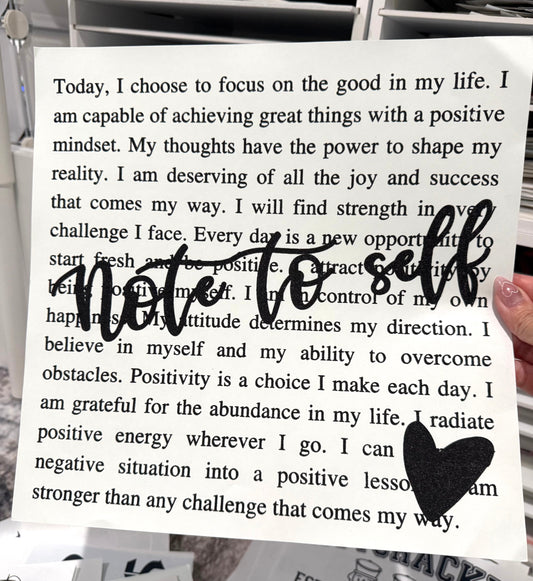 Today, I choose to focus on the good in my life. I
am capable of achieving great things with a positive
mindset. My thoughts have the power to shape my
reality. I am deserving of all the joy and success
that comes my way. I will find strength in every
challenge I face. Every day is a new opportunity to
start fresh and be positive. I attract positivity by
being positive myself. I am in control of my own
happiness. My attitude determines my direction. I
believe in myself and my ability to overcome
obstacles. Positivity is a choice I make each day. I
am grateful for the abundance in my life. I radiate
positive energy wherever I go. I can
negative situation into a positive lesson. I am
stronger than any challenge that comes my way.
Note to self